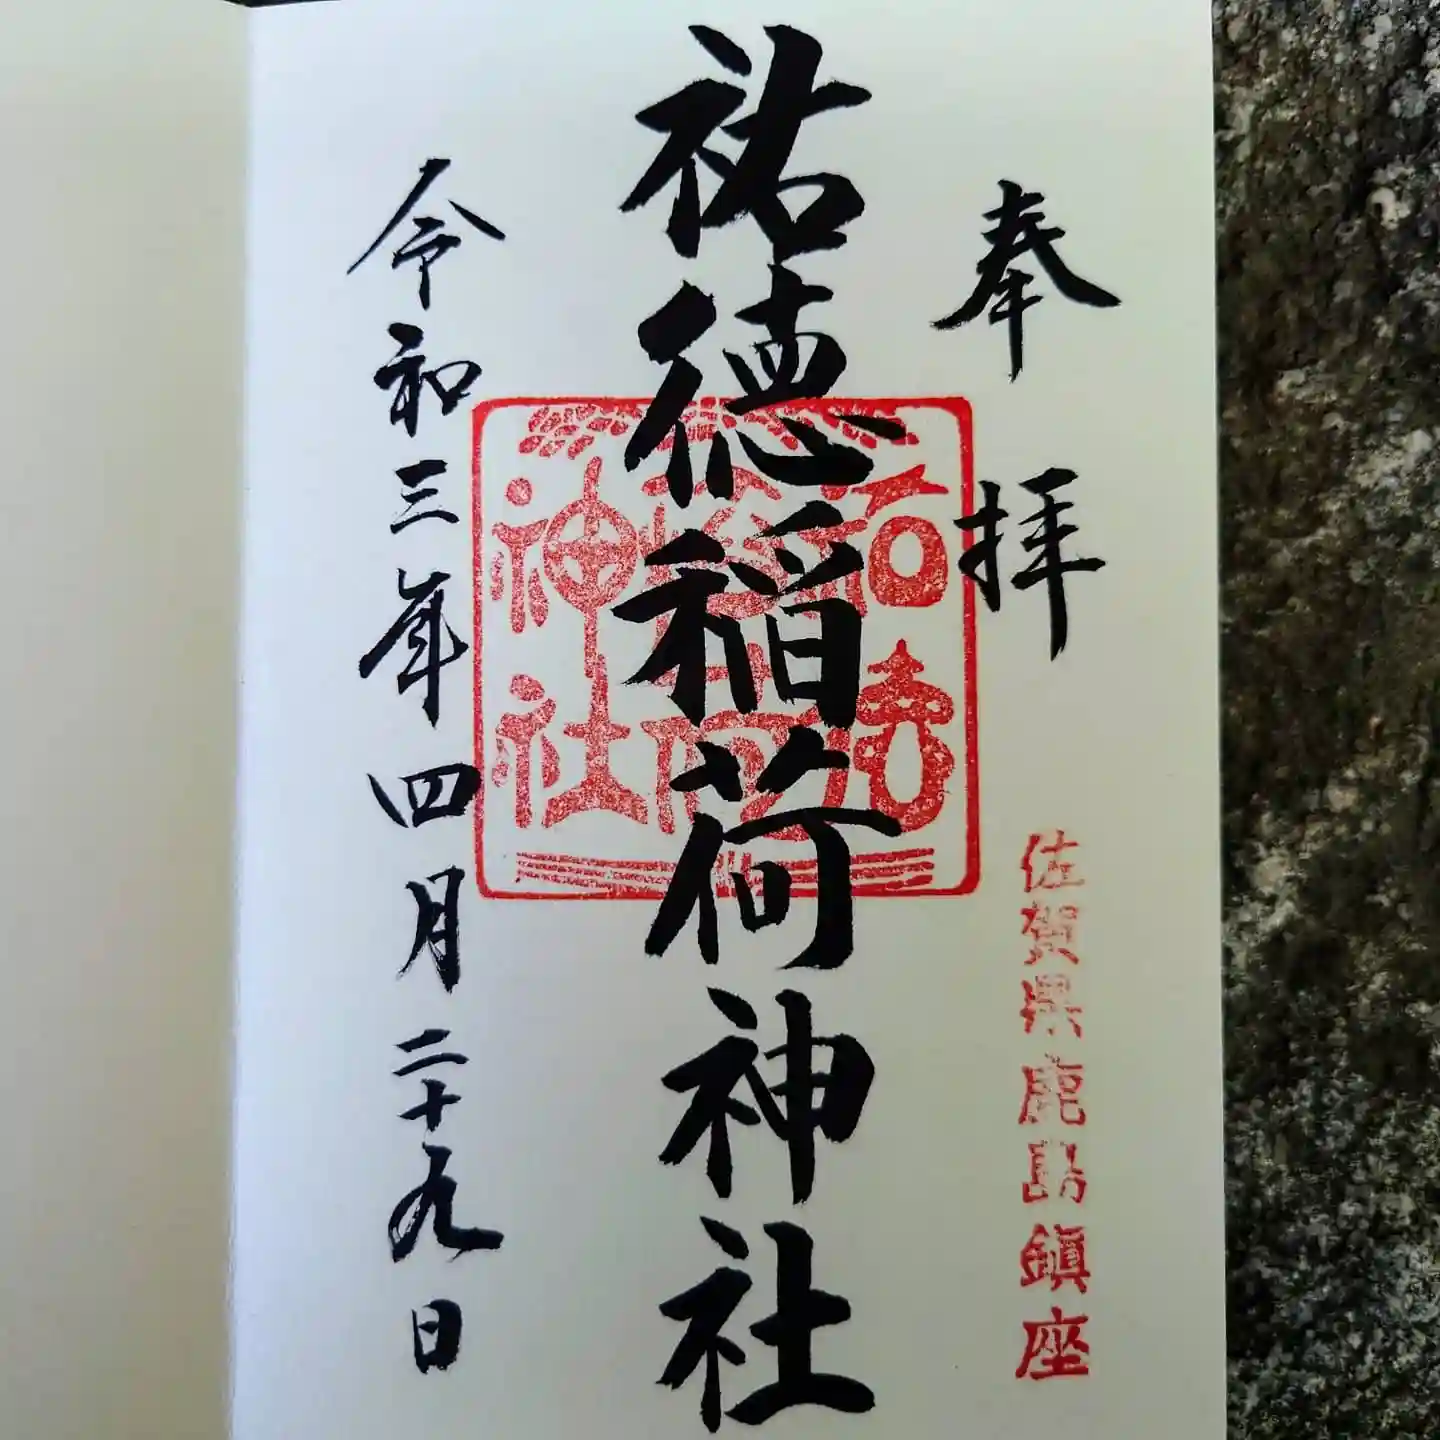 奉拝
佐賀県鹿島鎮座
祐徳稲荷神社
祐徳稲荷神社
令和三年四月二十九日